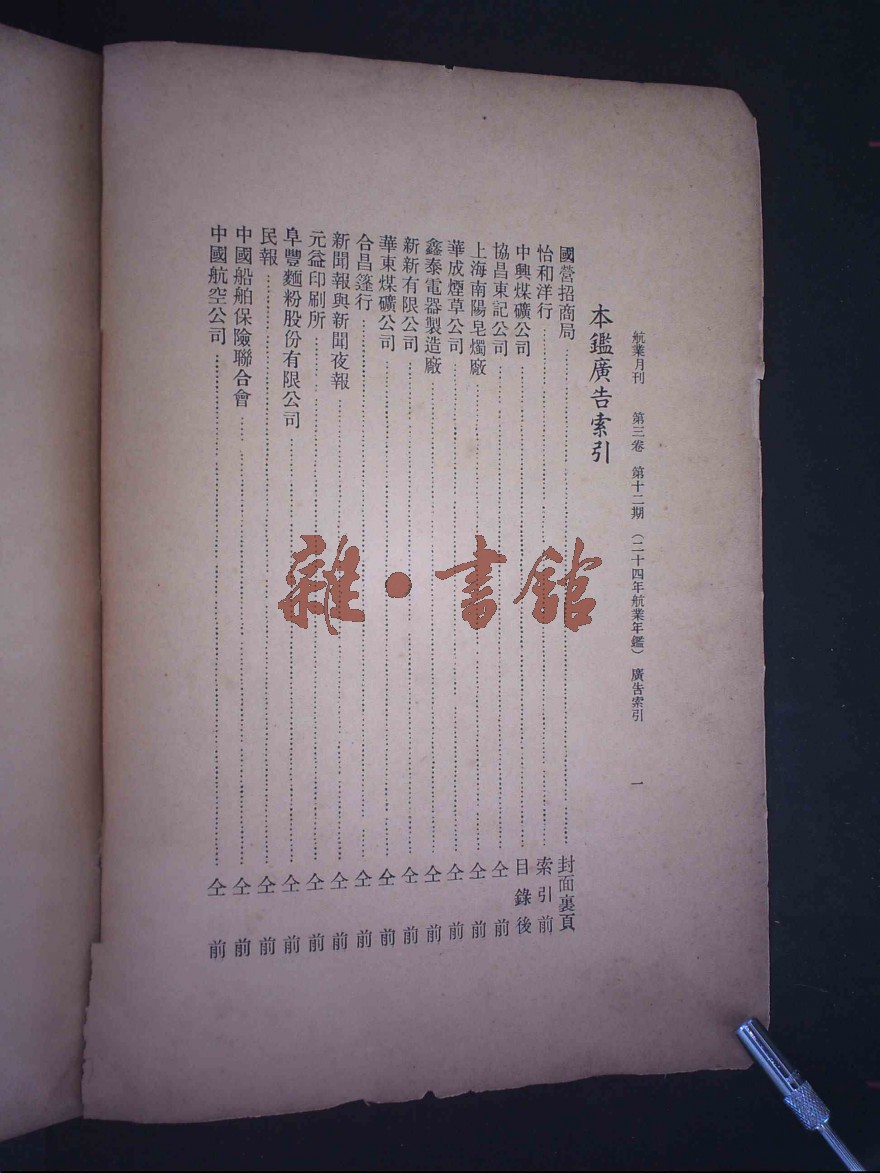 航業月刊 第三卷 第十二期 (二十四年航業年鑑) 廣告索引 一
本鑑廣告索引
國營招商局……封面裏頁
怡和洋行……索引前
中興煤礦公司……目錄後
協昌東記公司……仝前
上海南陽皂燭廠……仝前
華成煙草公司……仝前
鑫泰電器製造廠……仝前
新新有限公司……仝前
華東煤礦公司……仝前
合昌篷行……仝前
新聞報與新聞夜報……仝前
元益印刷所……仝前
阜豐麵粉股份有限公司……仝前
民報……仝前
中國船舶保險聯合會……仝前
中國航空公司……仝前
雜·書館